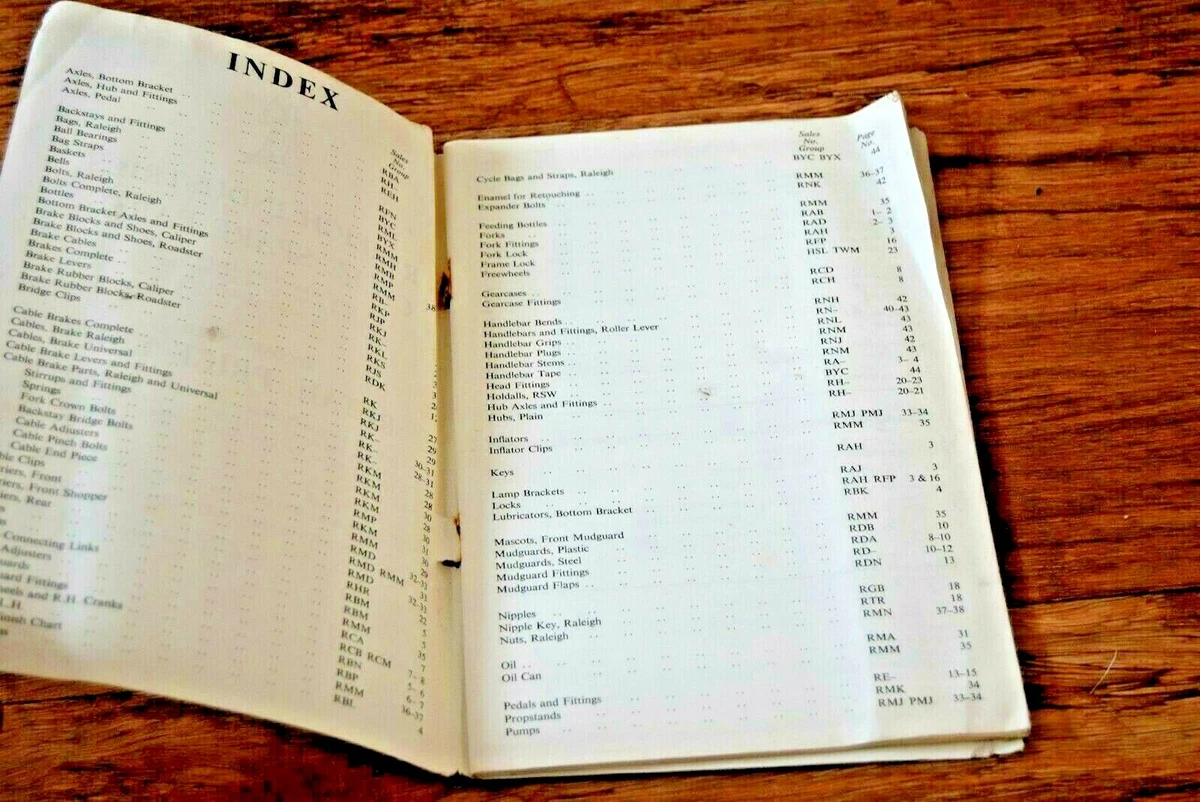 INDEX
Sales No. Group
Axles, Bottom Bracket RBA
Axles, Hub and Fittings RH-
Axles, Pedal REH
Backstays and Fittings RFN
Bags, Raleigh BYC
Ball Bearings RML
Bag Straps BYX
Baskets RMM
Bells RMH
Bolts, Raleigh RMB
Bolts Complete, Raleigh RMP
Bottles RMM
Bottom Bracket Axles and Fittings RB-
Brake Blocks and Shoes, Caliper RKP
Brake Blocks and Shoes, Roadster RJP
Brake Cables RKJ
Brakes Complete RK-
Brake Levers RKL
Brake Rubber Blocks, Caliper RKS
Brake Rubber Blocks, Roadster RJS
Bridge Clips RDK
Cable Brakes Complete RK
Cables, Brake Raleigh RKJ
Cables, Brake Universal RKJ
Cable Brake Levers and Fittings RK-
Cable Brake Parts, Raleigh and Universal RK-
Stirrups and Fittings RKM
Springs RKM
Fork Crown Bolts RKM
Backstay Bridge Bolts RKM
Cable Adjusters RKM
Cable Pinch Bolts RMP
Cable End Piece RKM
ble Clips RMM
riers, Front RMD
riers, Front Shopper RMD RMM
iers, Rear RMD
RHR
RBM
Connecting Links RBM
Adjusters RMM
uards RCA
uard Fittings RCB RCM
heels and R.H. Cranks RBN
L.H. RBP
inish Chart RMM
RBL
Sales No. Group Page No.
Cycle Bags and Straps, Raleigh BYC BYX 44
Enamel for Retouching RMM 36-37
Expander Bolts RNK 42
Feeding Bottles RMM 35
Forks RAB 1- 2
Fork Fittings RAD 2- 3
Fork Lock RAH 3
Frame Lock RFP 16
Freewheels HSL TWM 23
Gearcases RCD 8
Gearcase Fittings RCH 8
Handlebar Bends RNH 42
Handlebars and Fittings, Roller Lever RN- 40-43
Handlebar Grips RNL 43
Handlebar Plugs RNM 43
Handlebar Stems RNJ 42
Handlebar Tape RNM 43
Head Fittings RA- 3- 4
Holdalls, RSW BYC 44
Hub Axles and Fittings RH- 20-23
Hubs, Plain RH- 20-21
Inflators RMJ PMJ 33-34
Inflator Clips RMM 35
Keys RAH 3
Lamp Brackets RAJ 3
Locks RAH RFP 3 & 16
Lubricators, Bottom Bracket RBK 4
Mascots, Front Mudguard RMM 35
Mudguards, Plastic RDB 10
Mudguards, Steel RDA 8-10
Mudguard Fittings RD- 10-12
Mudguard Flaps RDN 13
Nipples RGB 18
Nipple Key, Raleigh RTR 18
Nuts, Raleigh RMN 37-38
Oil RMA 31
Oil Can RMM 35
Pedals and Fittings RE- 13-15
Propstands RMK 34
Pumps RMJ PMJ 33-34